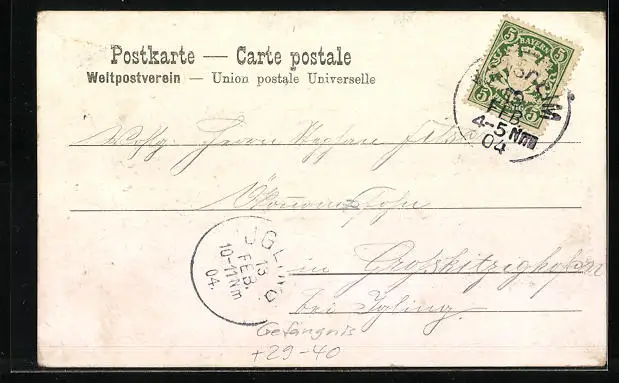 Postkarte — Carte postale
Weltpostverein — Union postale Universelle
5 BAYERN 5
5 5
FEB.
4-5 Nm
04
Wohlg. Herrn Stephan
Ökonomssohn
in Großkitzighofen
bei Igling.
13
FEB.
10-11 Nm
04.
Gefängnis
+29-40